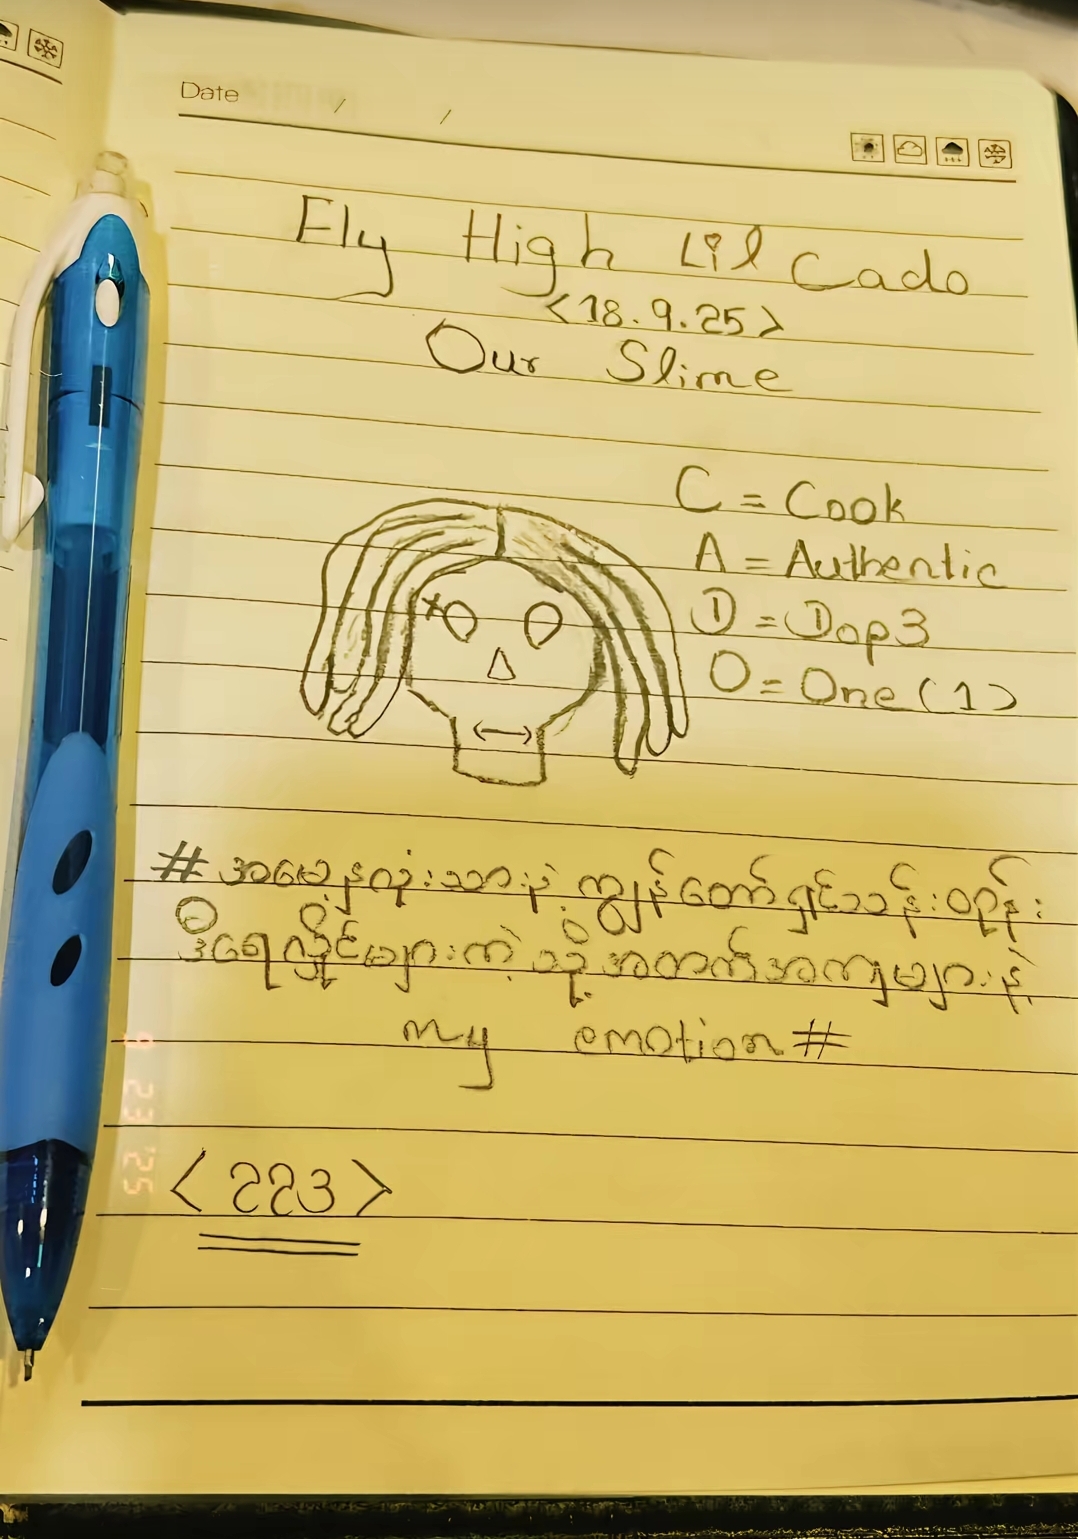 Date / /
Fly High Lil Cado
<18.9.25>
Our Slime
C = Cook
A = Authentic
D = Dop3
O = One (1)
#အမေ့နှလုံးသားနဲ့ ကျွန်တော်ရှင်သန်း
ဒီရေလှိုင်းများကဲ့သို့ အတက်အကျများနဲ့
my emotion#
<223>
9 23 '25